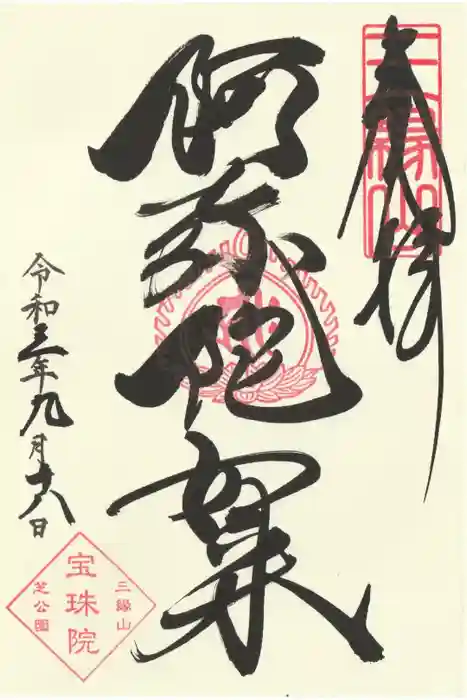 奉拝
三縁山
阿弥陀如来
令和三年九月十八日
三縁山
宝珠院
芝公園